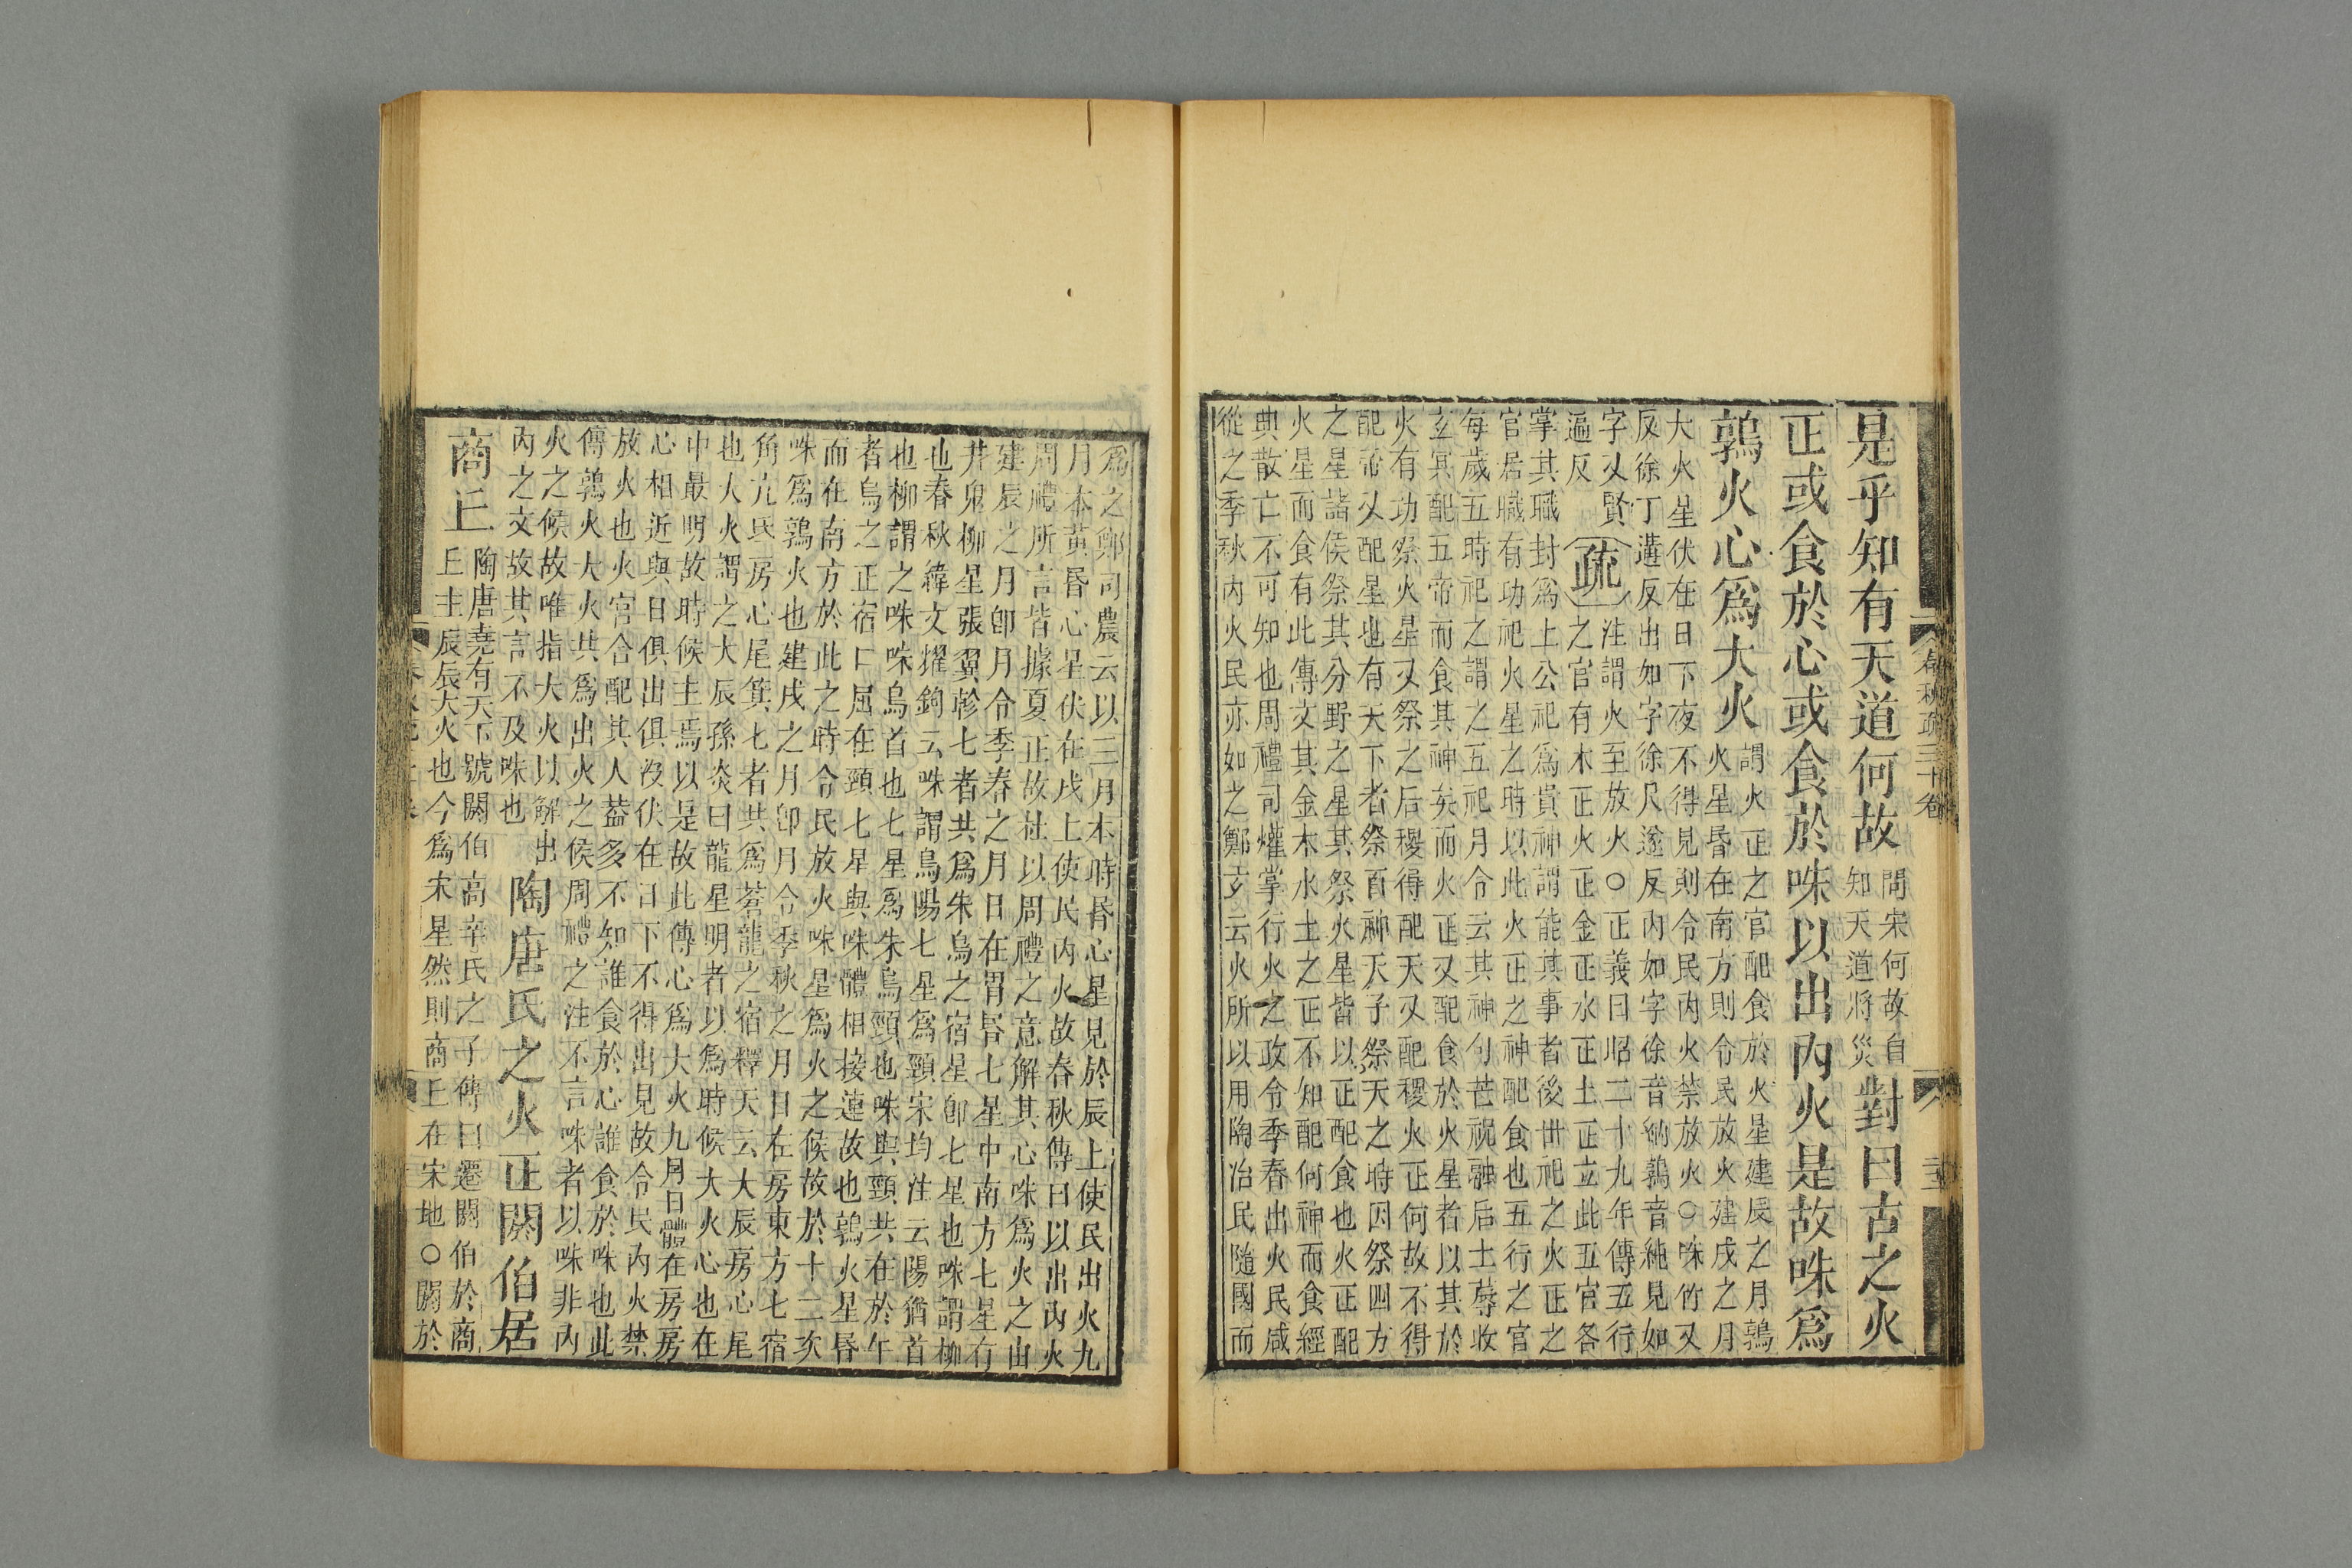 春秋疏三十卷
是乎知有天道何故問宋何故自知天道將災對曰古之火
正或食於心或食於咮以出內火是故咮爲
鶉火心爲大火
謂火正之官配食於火星建辰之月鶉
火星昏在南方則令民放火建戌之月
大火星伏在日下夜不得見則令民內火禁放火○咮竹又
反徐丁遘反出如字徐尺遂反內如字徐音納鶉音純見如
字又賢遍反
疏
注謂火至放火○正義曰昭二十九年傳五行
之官有木正火正金正水正土正立此五官各
掌其職封爲上公祀爲貴神謂能其事者後世祀之火正之
官居職有功祀火星之時以此火正之神配食也五行之官
每歲五時祀之謂之五祀月令云其神句芒祝融后土蓐收
玄冥配五帝而食其神矣而火正又配食於火星者以其於
火有功祭火星又祭之后稷得配天又配稷火正何故不得
配帝又配星也有天下者祭百神天子祭天之時因祭四方
之星諸侯祭其分野之星其祭火星皆以正配食也火正配
火星而食有此傳文其金木水土之正不知配何神而食經
典散亡不可知也周禮司爟掌行火之政令季春出火民咸
從之季秋內火民亦如之鄭玄云火所以用陶冶民隨國而
爲之鄭司農云以三月本時昏心星見於辰上使民出火九
月本黃昏心星伏在戌上使民內火故春秋傳曰以出內火
周禮所言皆據夏正故杜以周禮之意解其心咮爲火之由
建辰之月卽月令季春之月日在胃昏七星中南方七星有
井鬼柳星張翼軫七者共爲朱鳥之宿星卽七星也咮謂柳
也春秋緯文耀鉤云咮謂鳥陽七星爲頸宋均注云陽猶首
也柳謂之咮咮鳥首也七星爲朱鳥頸也咮與頸共在於午
者鳥之正宿口屈在頸七星與咮體相接連故也鶉火星昏
而在南方於此之時令民放火咮星爲火之候故於十二次
咮爲鶉火也建戌之月卽月令季秋之月日在房東方七宿
角亢氐房心尾箕七者共爲蒼龍之宿釋天云大辰房心尾
也大火謂之大辰孫炎曰龍星明者以爲時候大火心也在
中最明故時候主焉以是故此傳心爲大火九月日體在房房
心相近與日俱出俱沒伏在日下不得出見故令民內火禁
放火也火官合配其人蓋多不知誰食於心誰食於咮也此
傳鶉火大火共爲出火之候周禮之注不言咮者以咮非內
火之候故唯指大火以解出
內之文故其言不及咮也
陶唐氏之火正閼伯居
商丘
陶唐堯有天下號閼伯高辛氏之子傳曰遷閼伯於商
丘主辰辰大火也今爲宋星然則商丘在宋地○閼於